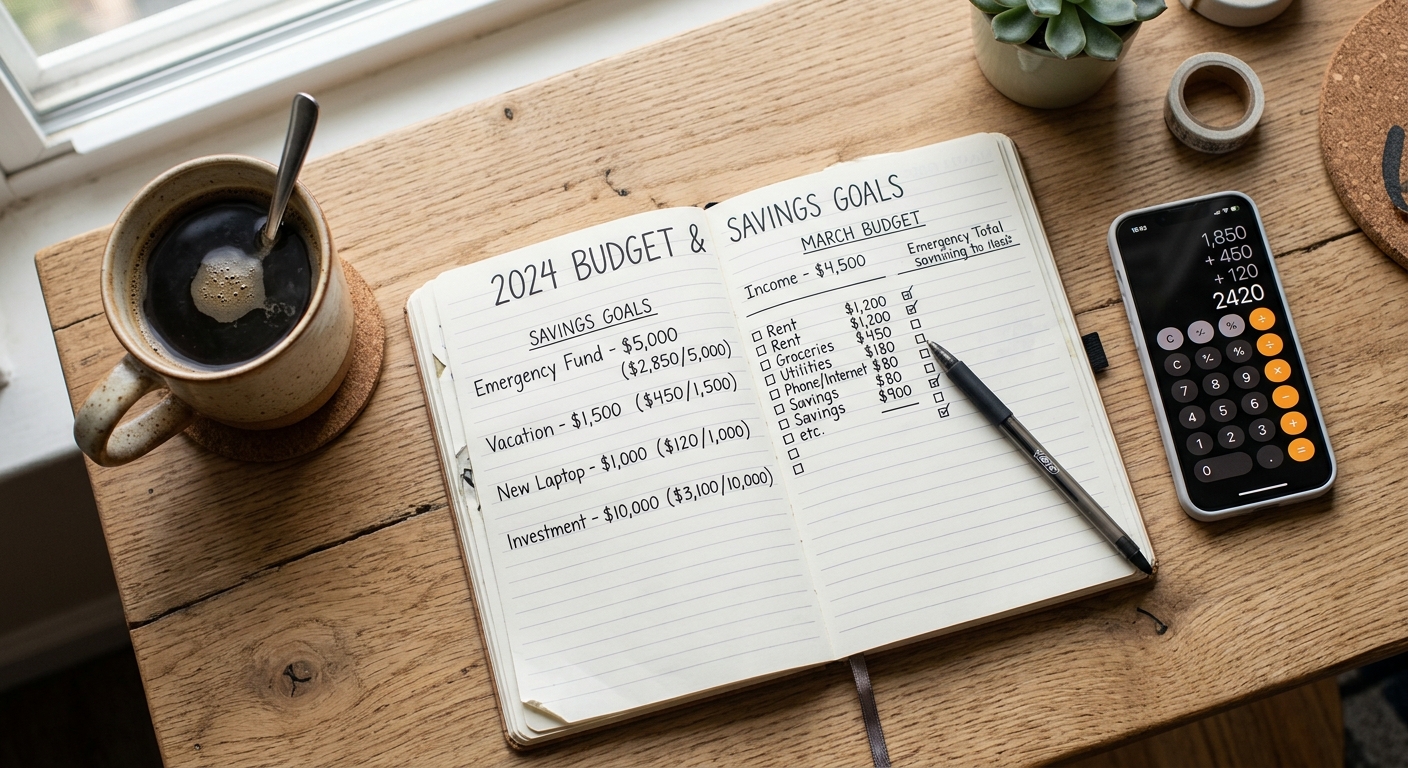 2024 BUDGET & SAVINGS GOALS
SAVINGS GOALS
Emergency Fund - $5,000
($2,850/5,000)
Vacation - $1,500 ($450/1,500)
New Laptop - $1,000 ($120/1,000)
Investment - $10,000 ($3,100/10,000)
MARCH BUDGET
Income - $4,500
Emergency Total
Rent $1,200
Rent $1,200
Groceries $450
Utilities $180
Phone/Internet $80
Savings $80
Savings $900
etc.
1,850
+ 450
+ 120
2420
C % ÷
C % ÷
7 8 9 ×
4 5 6 −
1 2 3 +
0 . =